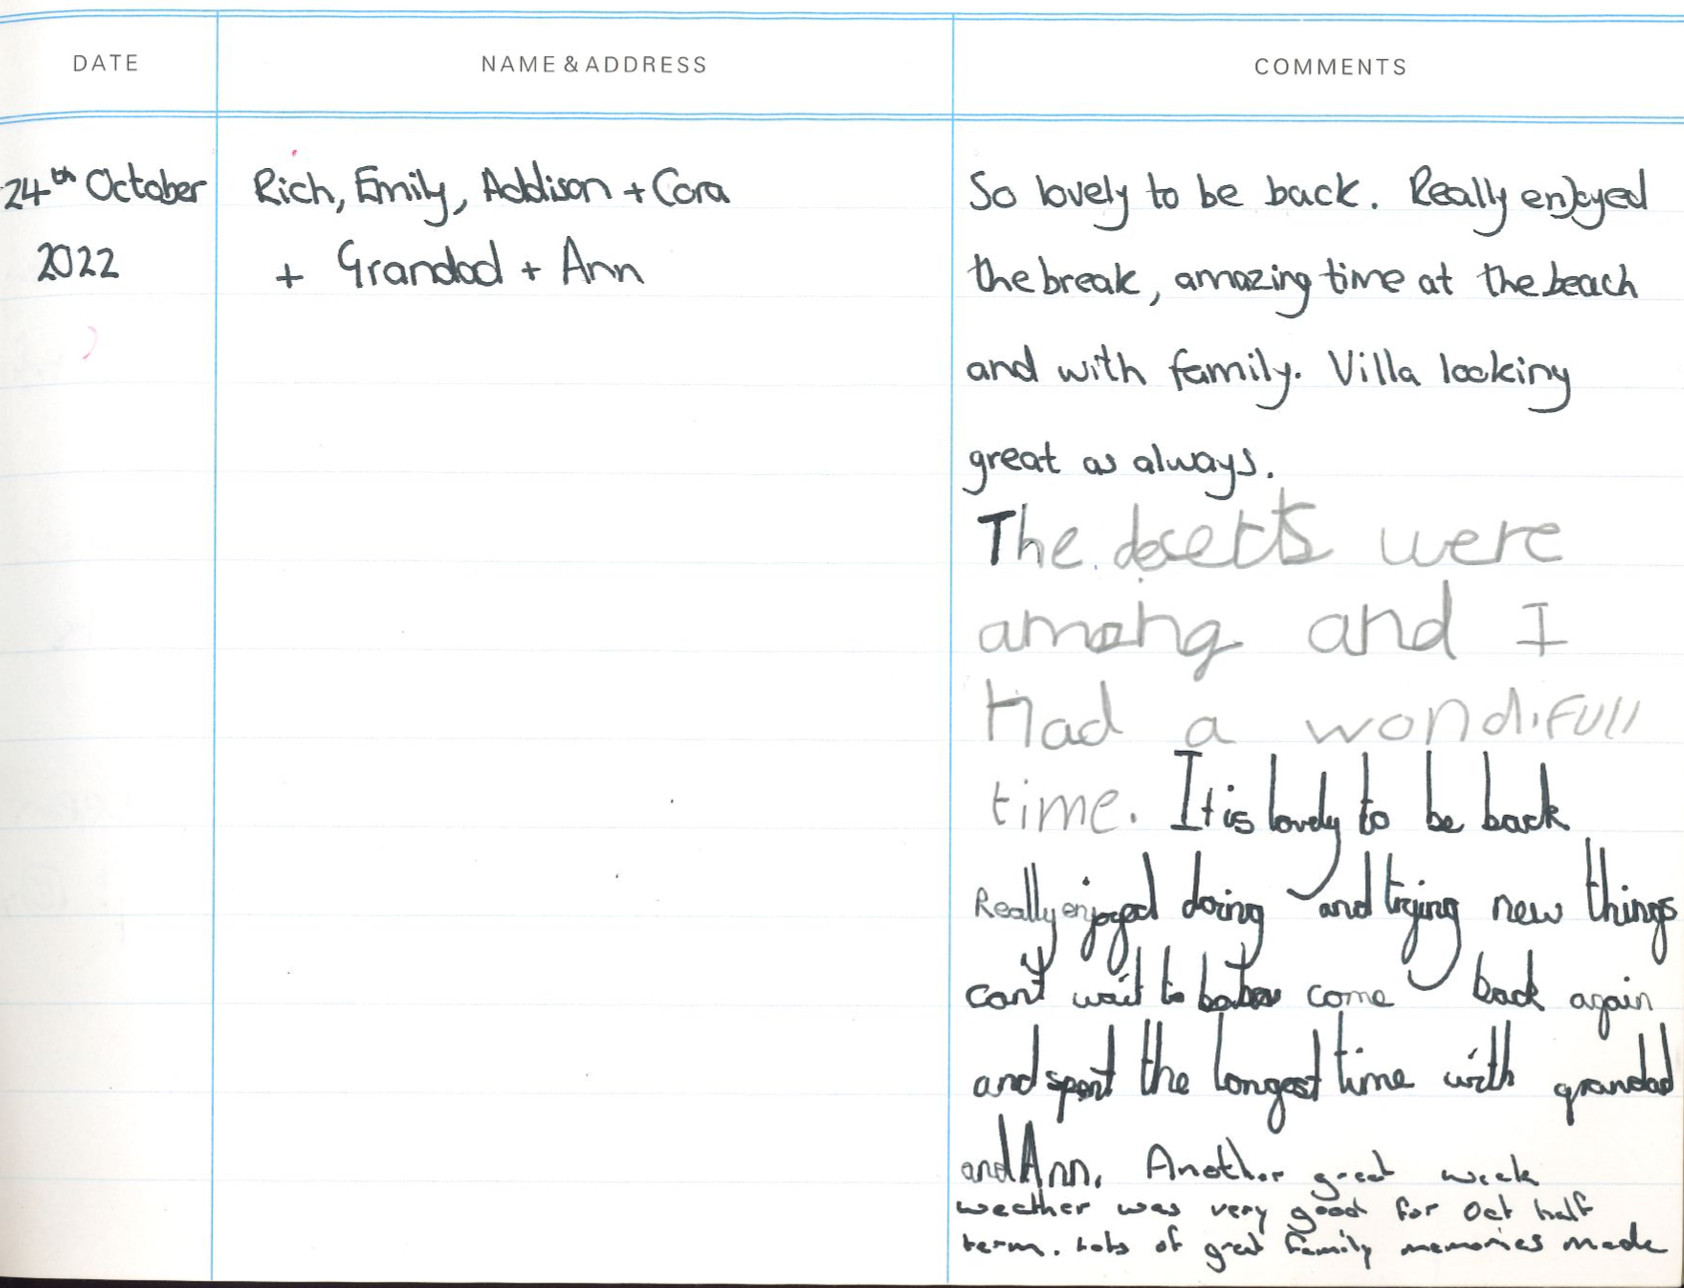 DATE NAME & ADDRESS COMMENTS
24th October Rich, Emily, Addison + Cora
2022 + Grandad + Ann
So lovely to be back. Really enjoyed
the break, amazing time at the beach
and with family. Villa looking
great as always.
The deserts were
amazing and I
Had a wondifull
time. It is lovely to be back
Really enjoyed doing and trying new things
can't wait to come back again
and spent the longest time with grandad
and Ann. Another great week
weather was very good for Oct half
term. Lots of great family memories made